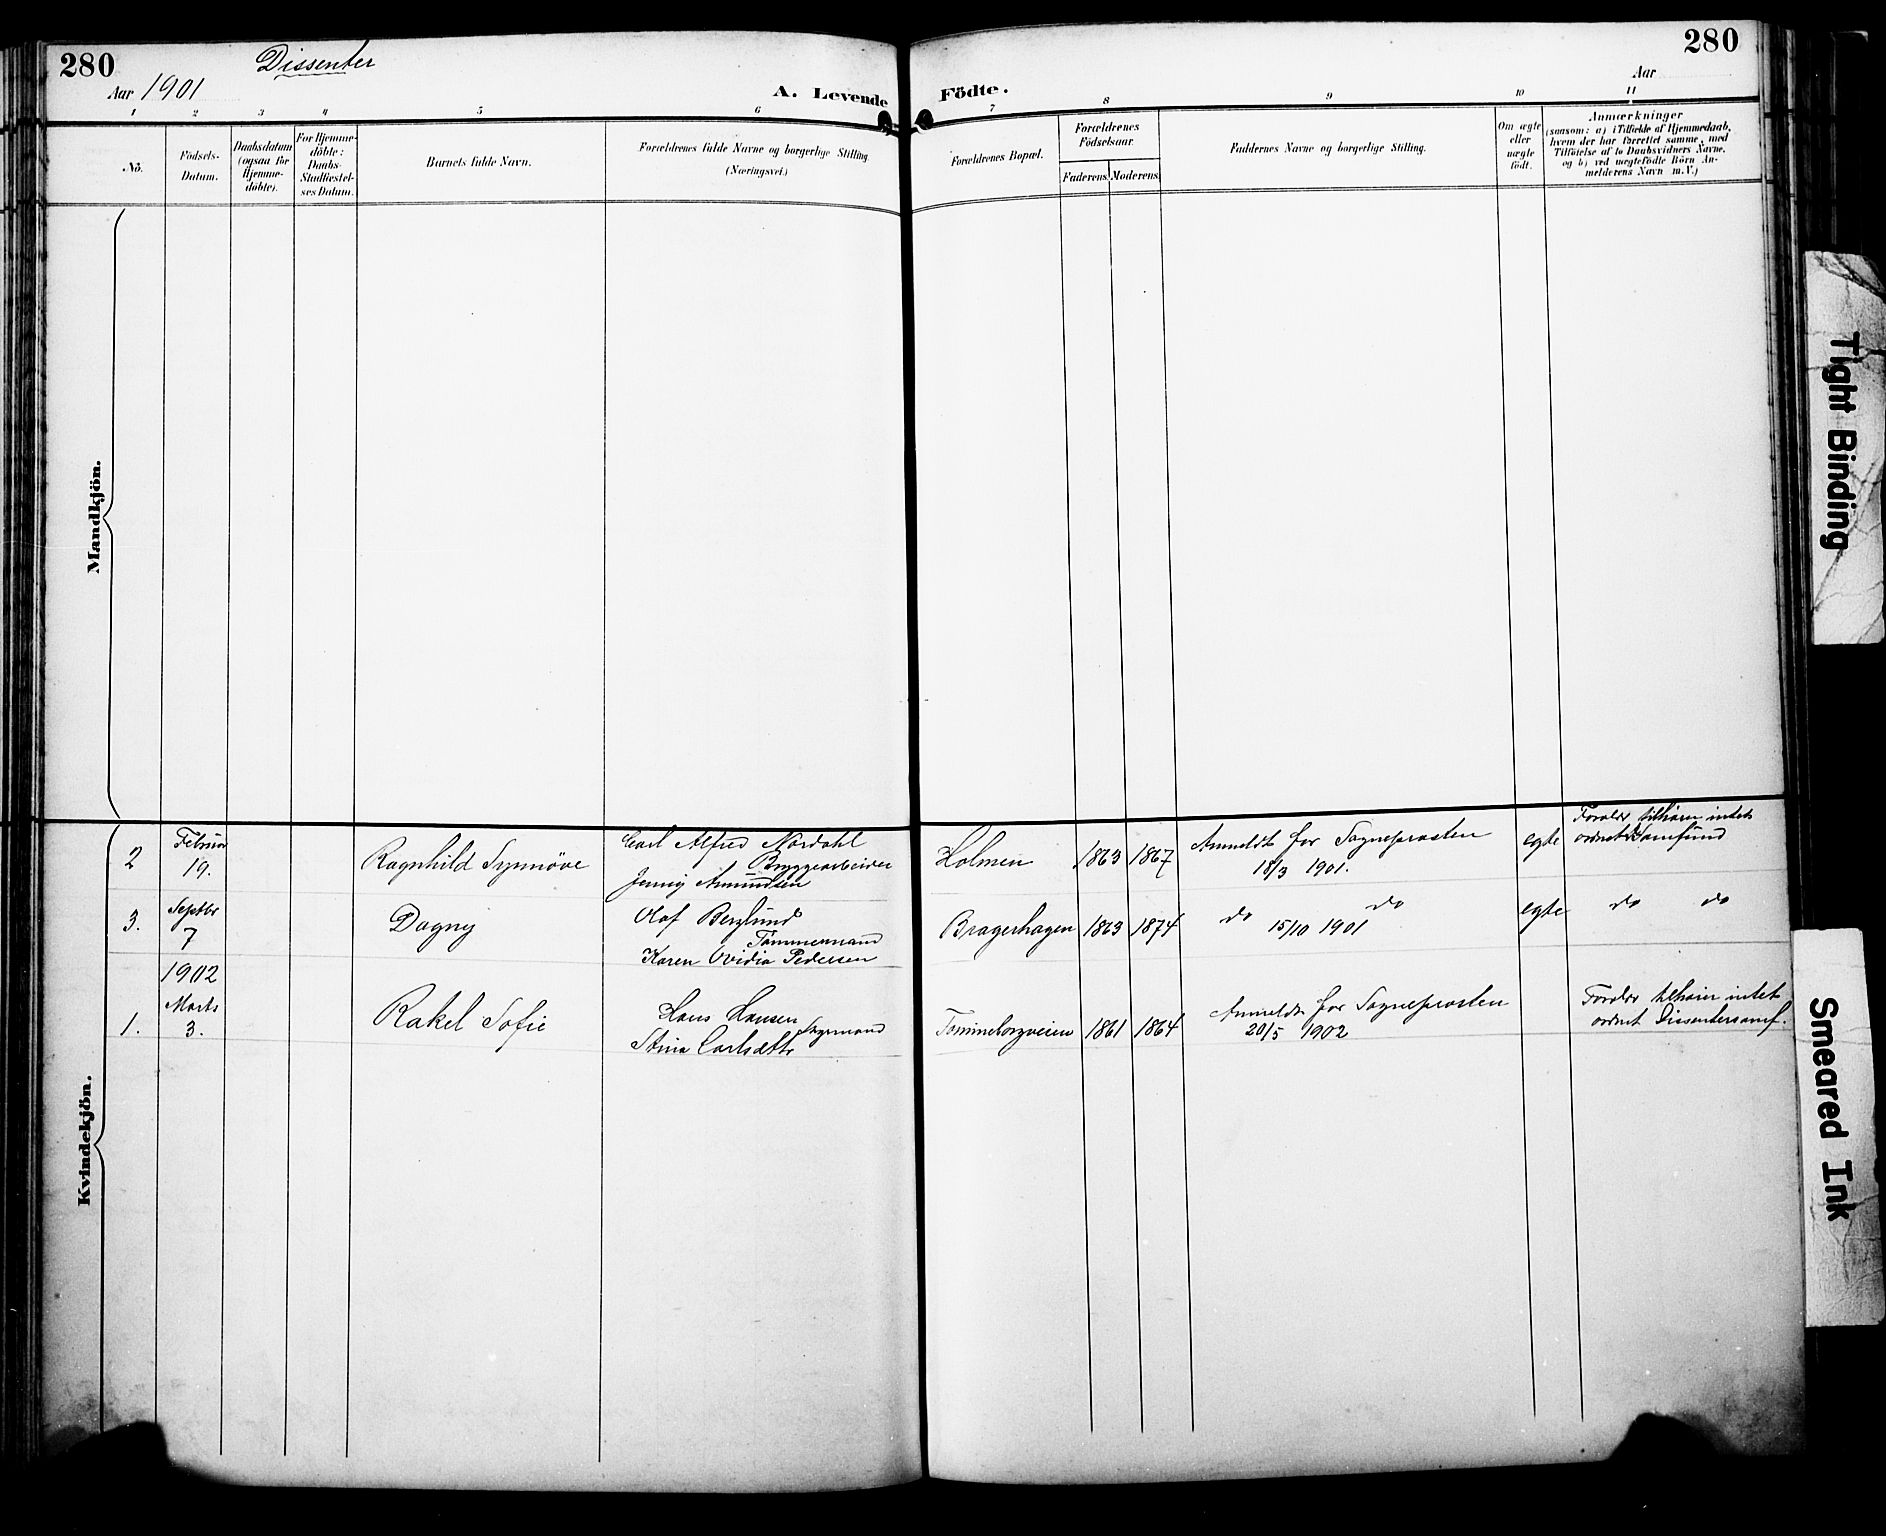 280
Dissenter
280
Aar 1901
Aar
A. Levende Födte.
1 2 3 4 5 6 7 8 9 10 11
No.
Födsels-
Datum.
Daabsdatum
(ogsaa for
Hjemme-
döbte).
For Hjemme-
döbte:
Daabs-
Stadfæstel-
ses Datum.
Barnets fulde Navn.
Forældrenes fulde Navne og borgerlige Stilling.
(Næringsvei.)
Forældrenes Bopæl.
Forældrenes
Födselsaar.
Faderens. Moderens.
Faddernes Navne og borgerlige Stilling.
Om ægte
eller
uægte
födt.
Anmærkninger
(saasom: a) i Tilfælde af Hjemmedaab,
hvem der har forrettet samme, med
Tilföielse af to Daabsvidners Navne,
og b) ved uægtefödte Börn An-
melderens Navn m.V.)
Mandkjön.
Kvindekjön.
2
Februar
19.
Ragnhild Synnöve
Carl Alfred Nordahl
Bryggearbeider
Jenny Amundsen
Holmen
1863 1867
Anmeldt for Sogneprosten
18/3 1901.
egte
Forældr tilhører intet
ordnet Samfund
3.
Septbr
7
Dagny
Olaf Berglund
Tømmermand
Karen Ovidia Pedersen
Bragerhagen
1863 1874
do do
15/10 1901
egte
do do
1902
1.
Marts
3.
Rakel Sofie
Hans Hansen
Sagmand
Stina Carlsdttr
Tomineborgveien
1861 1864
Anmeldt for Sogneprosten
20/5 1902
Forældr tilhører intet
ordnet Dissentersamf.
Tight Binding
Smeared Ink